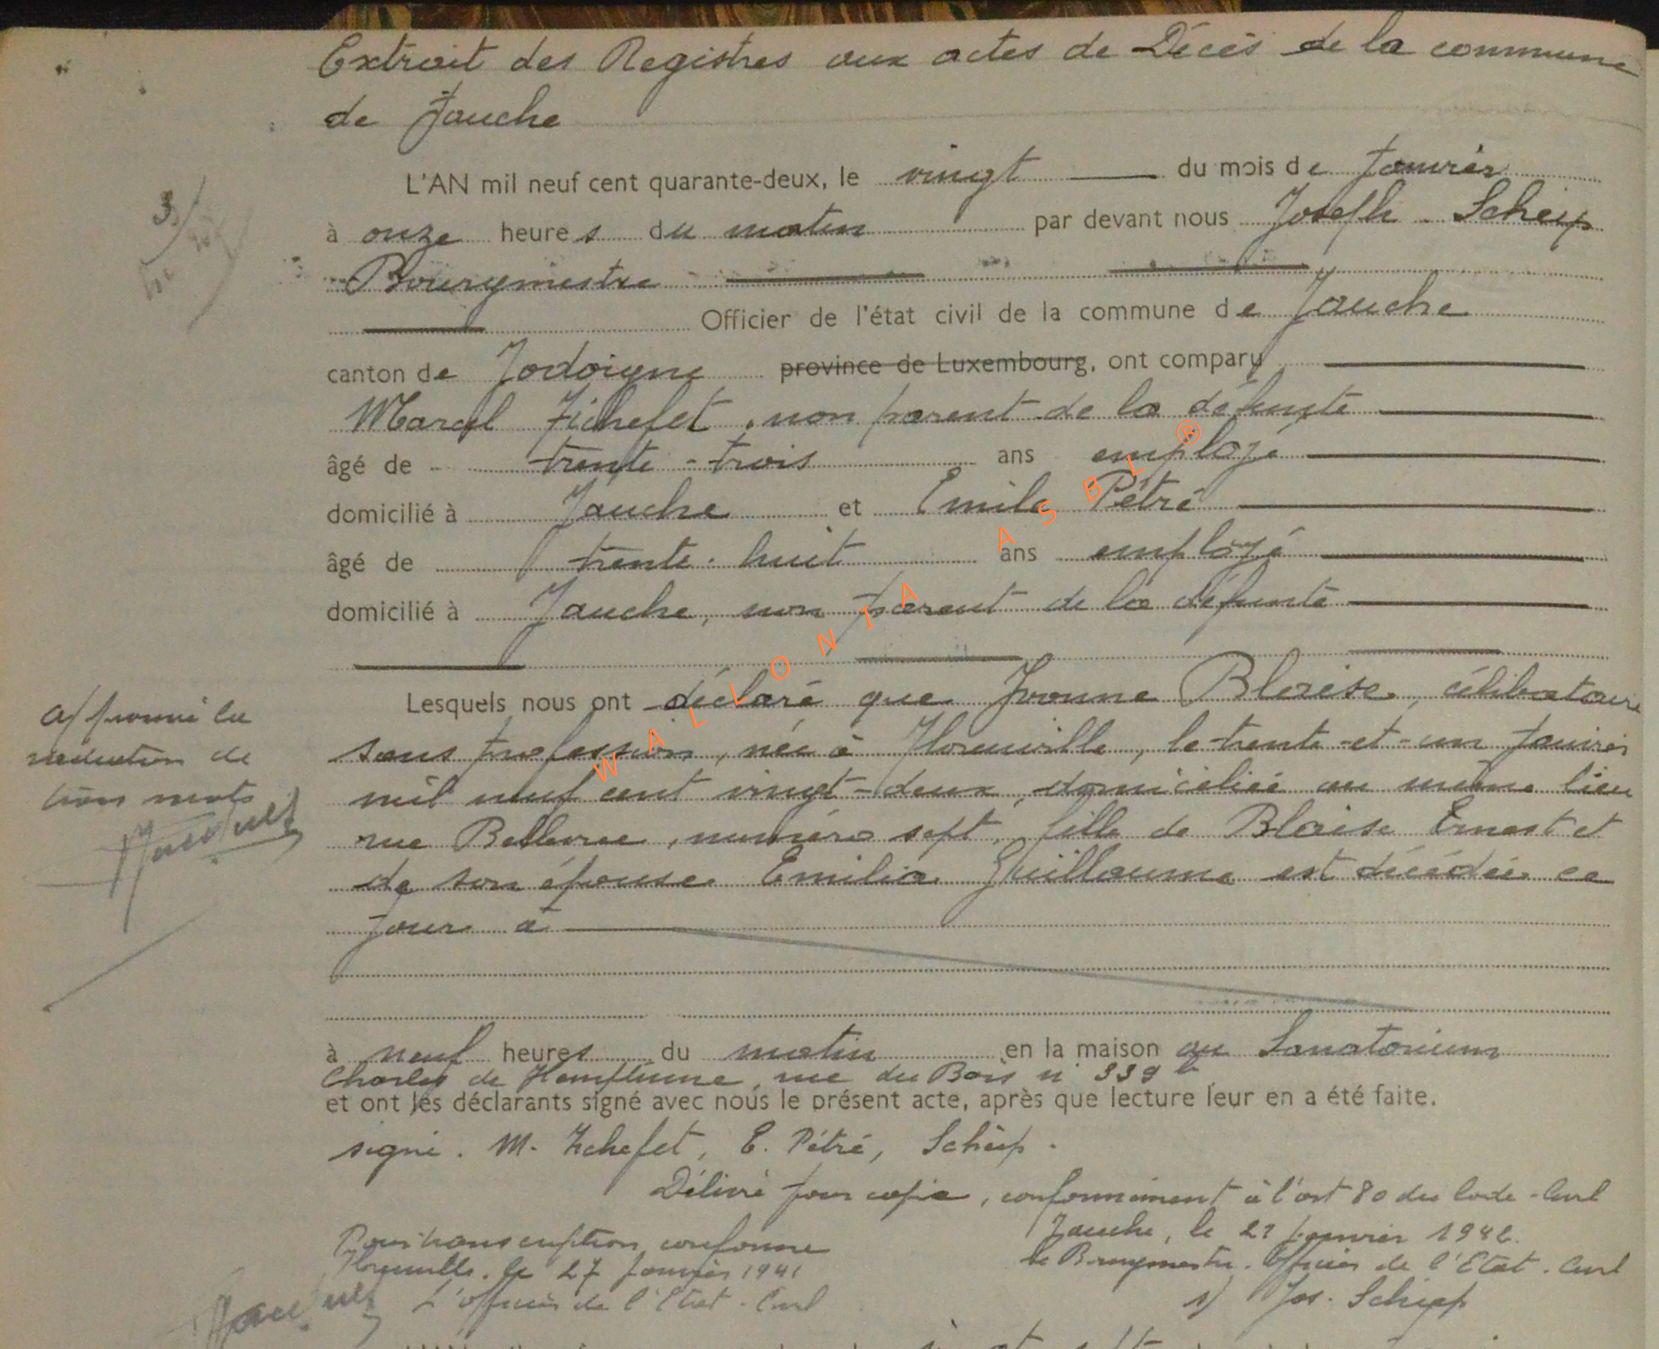 Extrait des Registres aux actes de Décès de la commune
de Jauche
L'AN mil neuf cent quarante-deux, le vingt du mois de Janvier
à onze heures du matin par devant nous Joseph Scheip
Bourgmestre
Officier de l'état civil de la commune de Jauche
canton de Jodoigne province de Luxembourg, ont comparu
Marcel Fichefet, non parent de la défunte
âgé de trente-trois ans employé
domicilié à Jauche et Emile Pétré
âgé de trente-huit ans employé
domicilié à Jauche, non parent de la défunte
Lesquels nous ont déclaré que Yvonne Blaise, célibataire
sans profession, née à Florenville, le trente-et-un janvier
mil neuf cent vingt-deux, domiciliée au même lieu
rue Bellevue, numéro sept, fille de Blaise Ernest et
de son épouse Emilia Guillaume est décédée ce
jour à
à neuf heures du matin en la maison au Sanatorium
Charles de Hemptinne, rue du Bois n° 339 b
et ont les déclarants signé avec nous le présent acte, après que lecture leur en a été faite.
signé. M. Fichefet, E. Pétré, Scheip.
Délivré pour copie, conformément à l'art 80 du Code-Civil
Jauche, le 21 janvier 1942.
le Bourgmestre. Officier de l'Etat-Civil
s) Jos. Scheip
Pour transcription conforme
Florenville, le 27 janvier 1941
L'officier de l'Etat-Civil
Approuvé la
radiation de
trois mots
WALLONIA ASBL ®